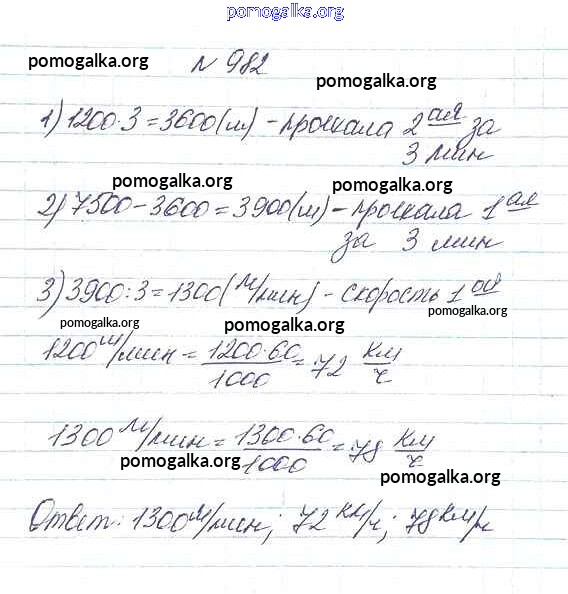 pomogalka.org
pomogalka.org
N 982
pomogalka.org
1) 1200·3=3600(м) - проехала 2ая за
3 мин
pomogalka.org
pomogalka.org
2) 7500-3600=3900(м) - проехала 1ая
за 3 мин
3) 3900:3=1300(м/мин) - скорость 1ой
pomogalka.org
pomogalka.org
pomogalka.org
1200 м/мин = 1200·60/1000 = 72 км/ч
1300 м/мин = 1300·60/1000 = 78 км/ч
pomogalka.org
pomogalka.org
Ответ: 1300 м/мин; 72 км/ч; 78 км/ч